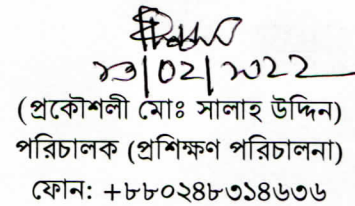 ২৩|০২|২০২২
(প্রকৌশলী মোঃ সালাহ উদ্দিন)
পরিচালক (প্রশিক্ষণ পরিচালনা)
ফোন: +৮৮০২৪৮৩১৪৬৩৬